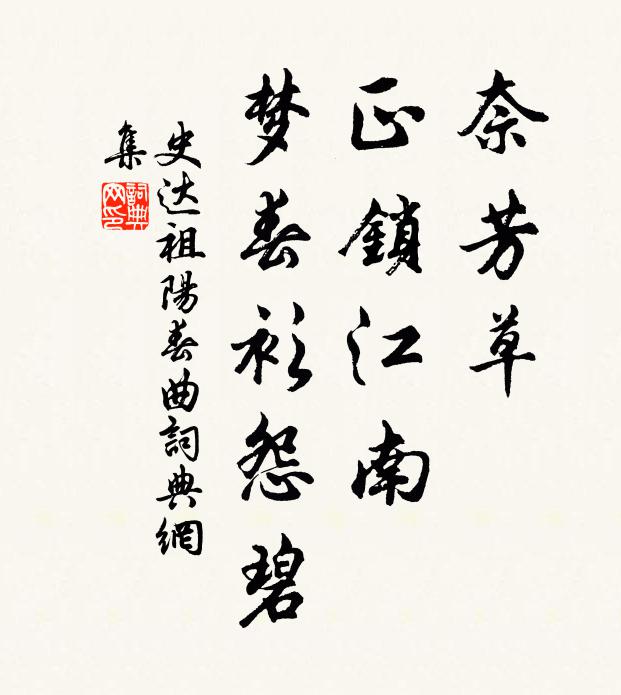 奈芳草
正鎖江南
梦春衫怨碧
史达祖陽春曲詞典網
集
詞典
网印